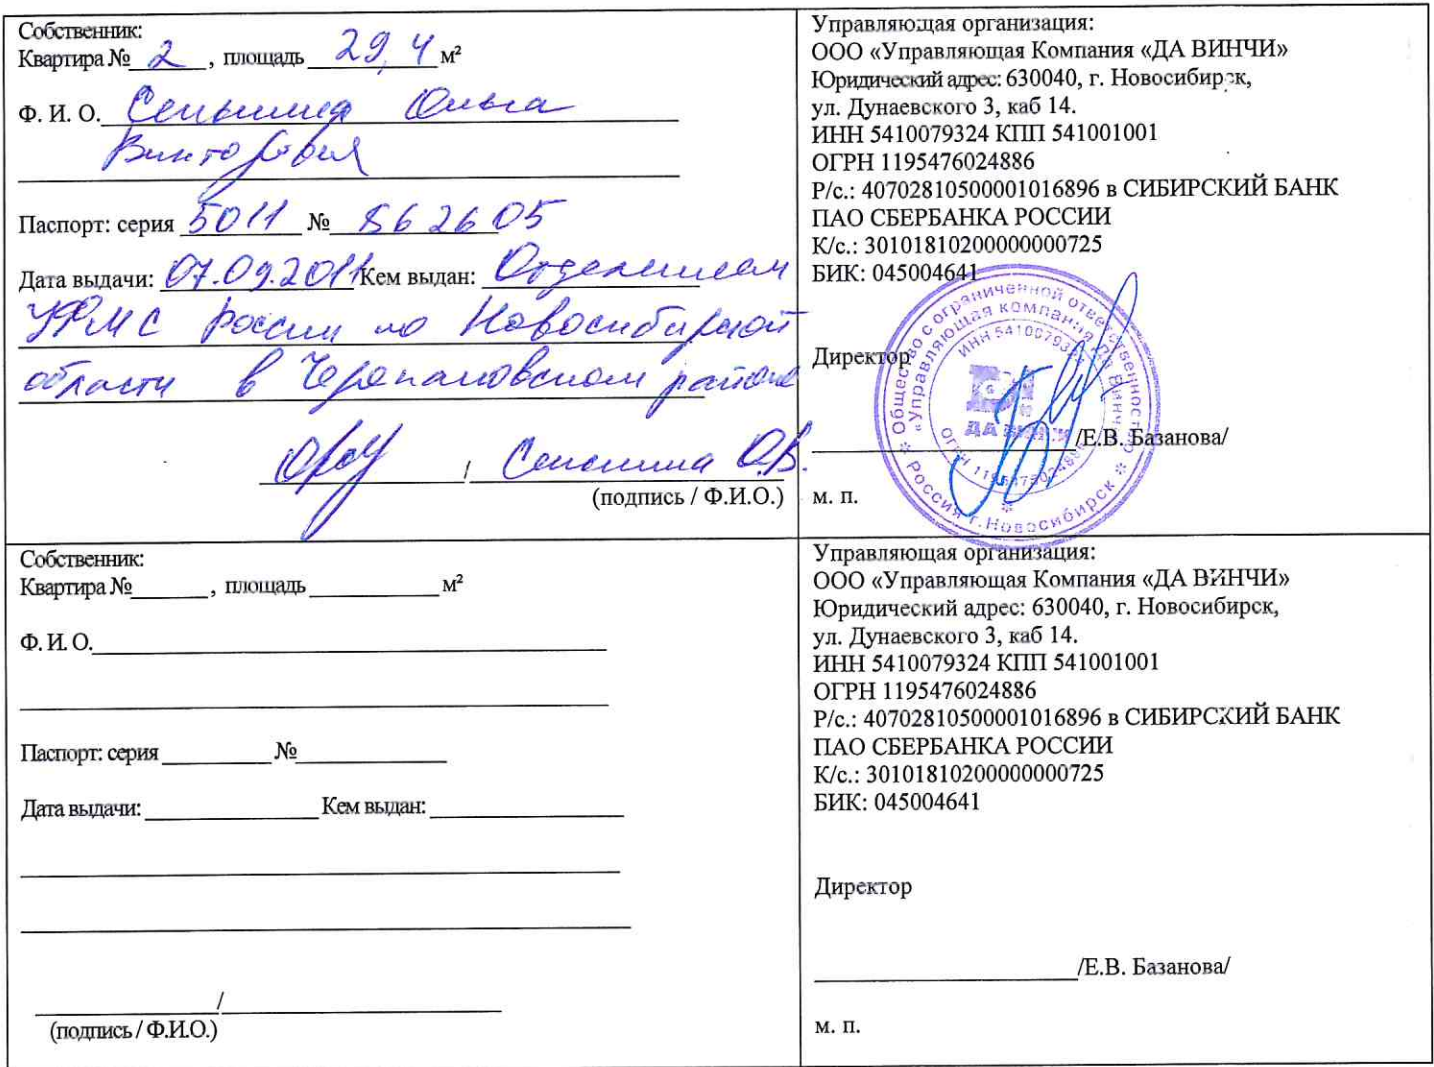 Собственник:
Квартира № 2, площадь 29,4 м²
Ф. И. О. Ольга
Викторовна
Паспорт: серия 5011 № 862605
Дата выдачи: 07.09.2011 Кем выдан: Отделением
УФМС России по Новосибирской
области в Черепановском районе
/ О.В.
(подпись / Ф.И.О.)
Управляющая организация:
ООО «Управляющая Компания «ДА ВИНЧИ»
Юридический адрес: 630040, г. Новосибирск,
ул. Дунаевского 3, каб 14.
ИНН 5410079324 КПП 541001001
ОГРН 1195476024886
Р/с.: 40702810500001016896 в СИБИРСКИЙ БАНК
ПАО СБЕРБАНКА РОССИИ
К/с.: 30101810200000000725
БИК: 045004641
Директор
/Е.В. Базанова/
м. п.
Общество с ограниченной ответственностью
«Управляющая компания Да Винчи»
Россия г. Новосибирск
ДА ВИНЧИ
Собственник:
Квартира № , площадь м²
Ф. И. О.
Паспорт: серия №
Дата выдачи: Кем выдан:
/
(подпись / Ф.И.О.)
Управляющая организация:
ООО «Управляющая Компания «ДА ВИНЧИ»
Юридический адрес: 630040, г. Новосибирск,
ул. Дунаевского 3, каб 14.
ИНН 5410079324 КПП 541001001
ОГРН 1195476024886
Р/с.: 40702810500001016896 в СИБИРСКИЙ БАНК
ПАО СБЕРБАНКА РОССИИ
К/с.: 30101810200000000725
БИК: 045004641
Директор
/Е.В. Базанова/
м. п.